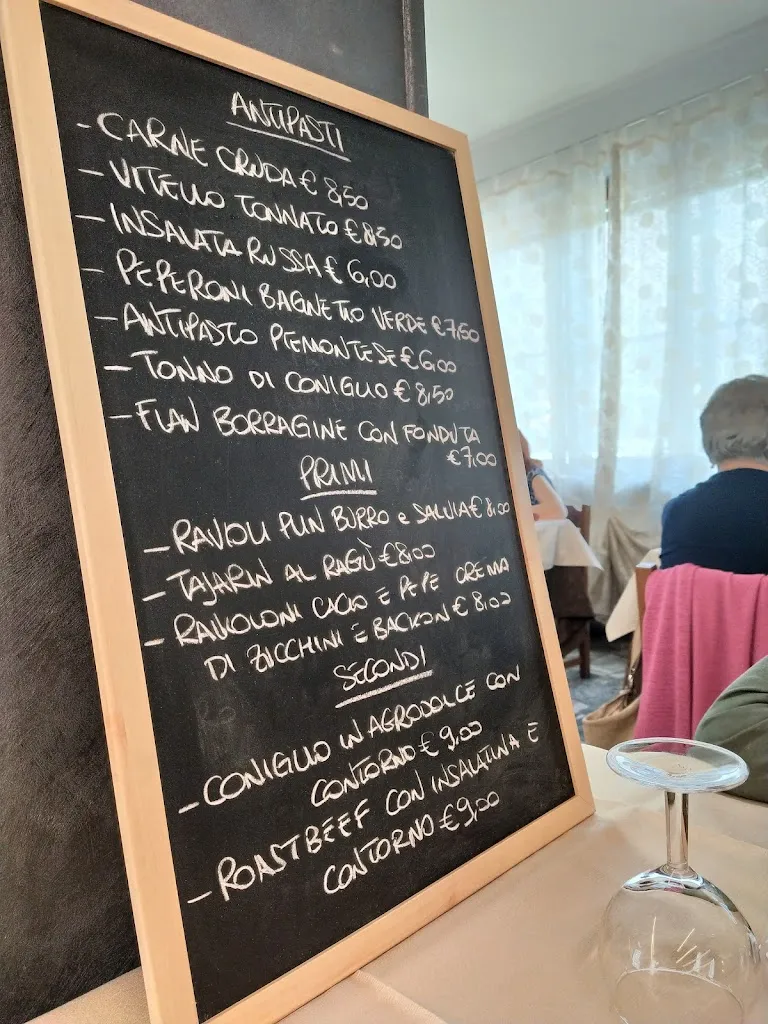 ANTIPASTI
- CARNE CRUDA € 8,50
- VITELLO TONNATO € 8,50
- INSALATA RUSSA € 6,00
- PEPERONI BAGNETTO VERDE € 7,50
- ANTIPASTO PIEMONTESE € 6,00
- TONNO DI CONIGLIO € 8,50
- FLAN BORRAGINE CON FONDUTA
€ 7,00
PRIMI
- RAVIOLI PLIN BURRO e SALVIA € 8,00
- TAJARIN AL RAGÙ € 8,00
- RAVIOLONI CACIO E PEPE CREMA
DI ZUCCHINI E BACKON € 8,00
SECONDI
- CONIGLIO IN AGRODOLCE CON
CONTORNO € 9,00
- ROASTBEEF CON INSALATINA E
CONTORNO € 9,00